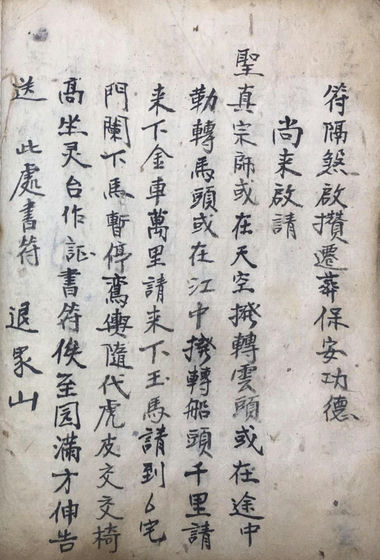 符隔煞啟攢遷葬保安功德
尚来啟請
聖真宗師或在天空撥轉雲頭或在途中
勒轉馬頭或在江中撥轉船頭千里請
来下金車萬里請来下玉馬請到宅
門闌下馬暫停鸞輿隨代虎皮交交椅
高坐灵台作証書符俟至园满才伸告
送 此處書符 退 山